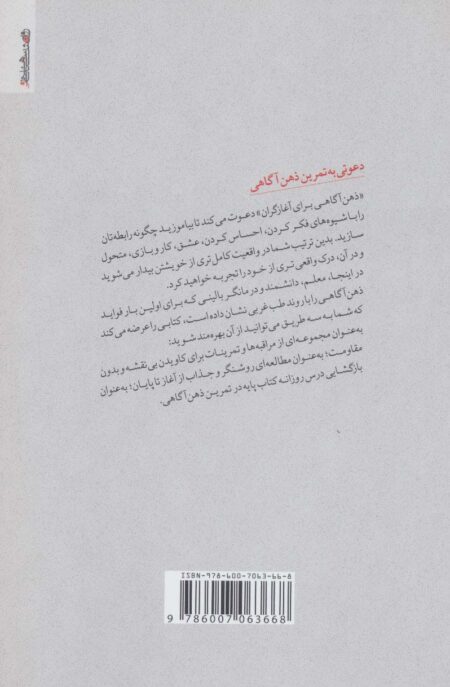 دعوتی به تمرین ذهن آگاهی
«ذهن آگاهی برای آغازگران» دعوت می‌کند تا بیاموزید چگونه رابطه‌تان
را با شیوه‌های فکر کردن، احساس کردن، عشق، کار و بازی، متحول
سازید. بدین ترتیب شما در واقعیت کامل‌تری از خویشتن بیدار می‌شوید
و در آن، درک واقعی‌تری از خود را تجربه خواهید کرد.
در اینجا، معلم، دانشمند و درمانگر بالینی که برای اولین بار فواید
ذهن آگاهی را با روند طب غربی نشان داده است، کتابی را عرضه می‌کند
که شما به سه طریق می‌توانید از آن بهره‌مند شوید:
به‌عنوان مجموعه‌ای از مراقبه‌ها و تمرینات برای کاویدن بی‌نقشه و بدون
مقاومت؛ به‌عنوان مطالعه‌ای روشنگر و جذاب از آغاز تا پایان؛ به‌عنوان
بازگشایی درس روزانه کتاب پایه در تمرین ذهن آگاهی.
ISBN-978-600-7063-66-8
9 786007 063668